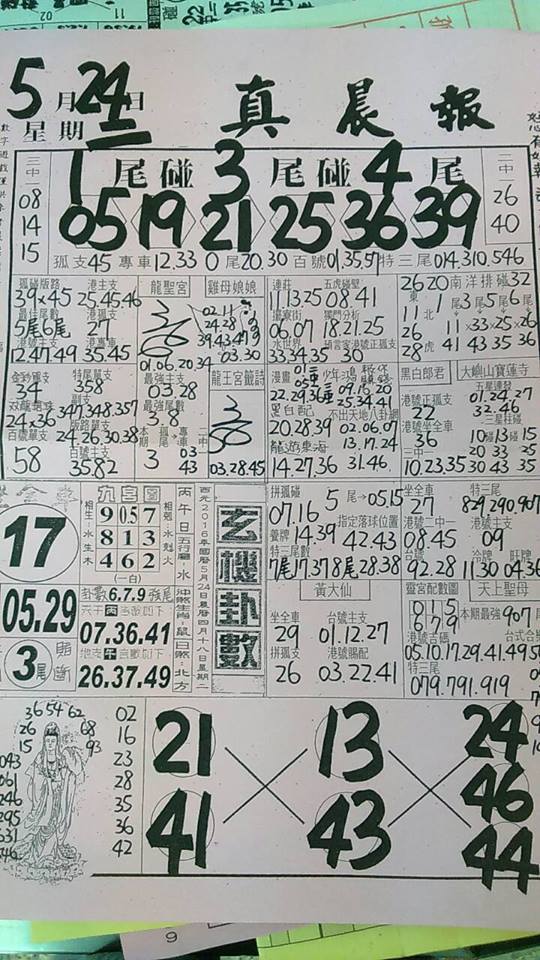 5月24日
星期二
真晨報
1尾碰3尾碰4尾
05 19 21 25 36 39
三中
08
14
15
二中
26
40
孤支45 專車12.33 0尾20.30 百號01.35.57 特三尾014.310.546
孤碰版路
39×45
最佳尾數
5尾6尾
港號主支
12.47.49
港主支
25.45.46
港孤支
27
港專車
35.45
龍聖宮
01.06.20
雞母娘娘
02.11
24.28
39.43.49
03.30
連莊
11.13.25
五虎碰壁
08.41
撮寮街
06.07
獨門分析
18.21.25
水世界
33.34.35
預言家港號正孤支
30
26 20 南洋排碰 32
11
26
28
北
虎
1尾 3尾 5尾 6尾
11×33×25×26
41 43 35 36
34
特尾單支
358
24×36
副支
347.348.357
版路單支
24.26.30.38
百號單支
58
百號主支
35.82
最強主支
03.28
最強尾數
3.8
本期孤尾
3
專車
二中
03
43
龍王宮籤詩
03.28.45
漫畫
22.29.36
09.18.20
25.34.41
黑白配
20.28.39
不出天地八卦網
02.06.07
13.17.24
31.46
龍遊東海
14.27.36
黑白郎君
港號正孤支
22
港號坐全車
36
三中一
10.23.35
大嶼山寶蓮寺
五星連發
01.24.27
32.46
三星柱碰
10 碰 13 碰 15
20 33 25
30 43 35
17
05.29
3尾
九宮圖
9 0.5 7
8 1 3
4 6 2
(一白)
相生:水生木
相剋:水剋火
卦數6.7.9強尾
天干丙吉數如下
07.36.41
地支午吉數如下
26.37.49
丙午日五行屬:水
沖煞生肖:鼠日煞:北方
西元2016年國曆5月24日農曆四月十八日星期二
玄機卦數
拼孤碰
07.16
5尾→05.15
養牌
14.39
指定落球位置
42.43
特三尾數
7尾17.37 8尾28.38
坐全車
27
特三尾
829.290.907
港號二中一
08.45
港號主支
09
台號
92.28
冷牌
11.30
旺牌
04.36
黃大仙
坐全車
29
台號主支
01.12.27
拼孤支
26
港號賜配
03.22.41
靈宮配數圖
0 1 5
6 7 9
天上聖母
本期最強907尾
港號吉碼
05.10.17.29.41.49
台式合
特三尾
079.791.919
36 54 62
26
15
68
93
043
061
246
295
631
02
16
23
28
35
36
42
21 13 24
41 43 46
44